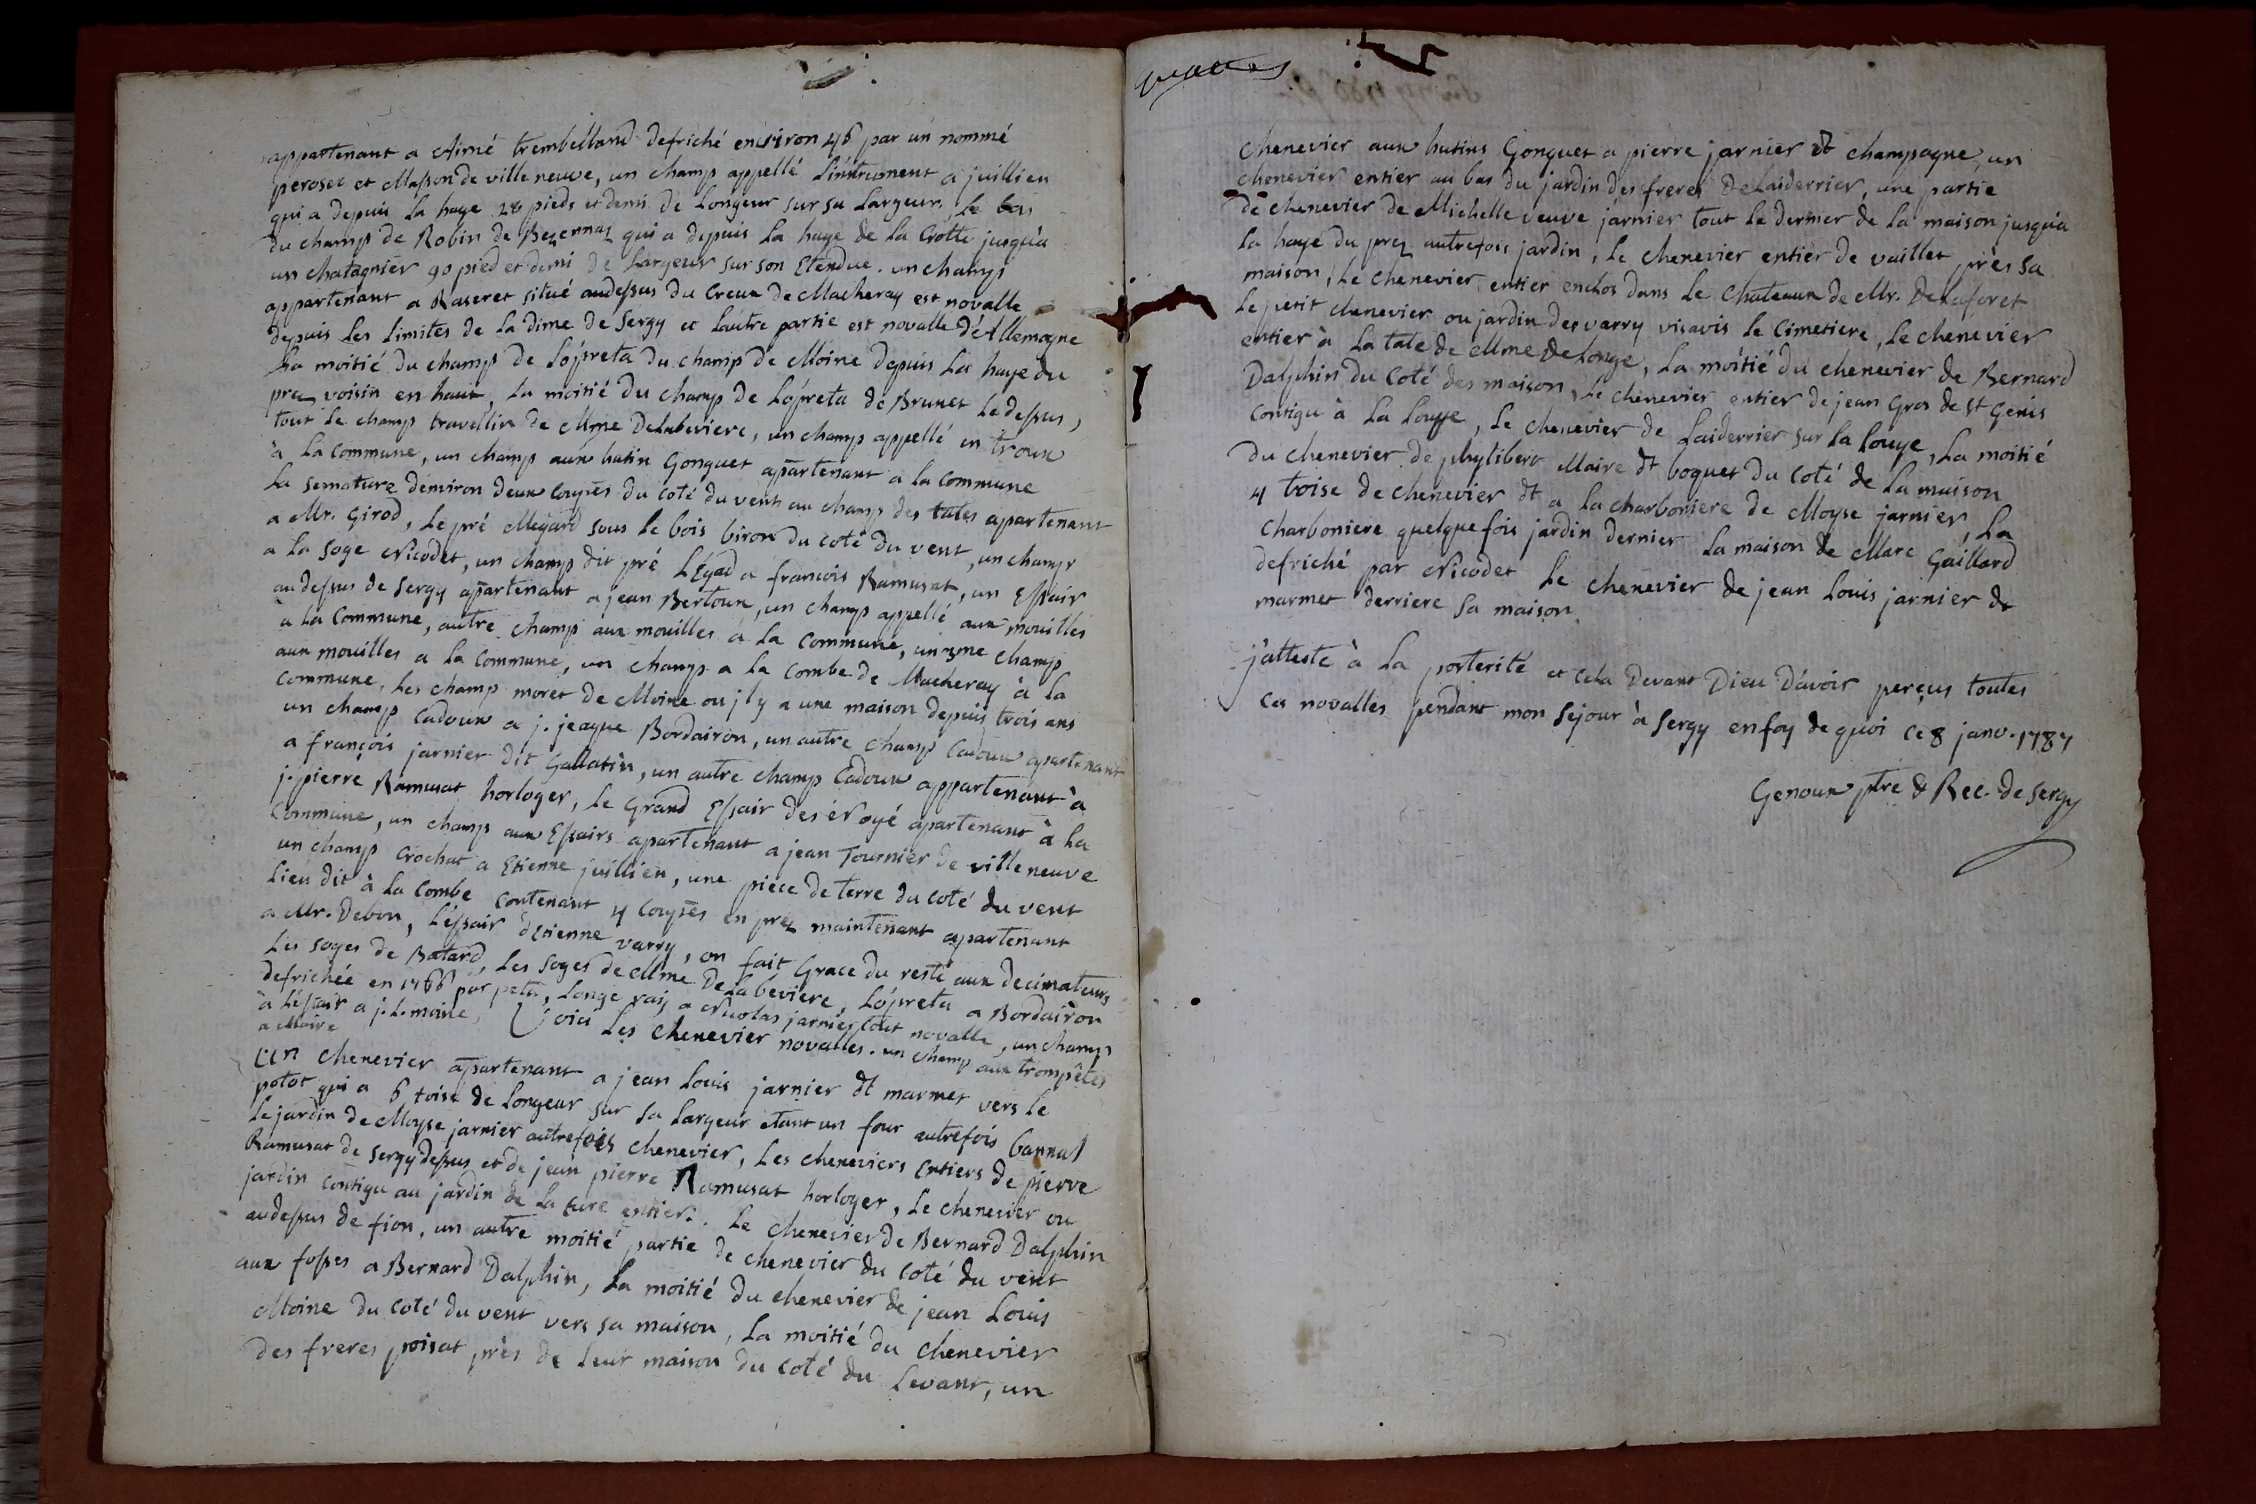 appartenant a Aimé trembelland defriché environ 46 par un nommé
peroset et Masson de ville neuve, un champ appellé L'instrument a juillien
qui a depuis la haye 28 pieds et demi de Longeur sur sa Largeur, Le bas
du champ de Robin de Bezennaz qui a depuis La haye de La Crotte jusqu'a
un chatagnier 90 pied et demi de Largeur sur son Etendue. un champ
appartenant a Raseret situé audessus du Creux de Macheray est novalle
depuis Les Limites de La dime de Sergy et Lautre partie est novalle d'Allemogne
La moitié du champ de Lópreta du champ de Moine depuis La haye du
prez voisin en haut, La moitié du champ de Lópreta de Brunet Le dessus,
tout Le champ travellin de Mme Delabeviere, un champ appellé en troux
à La Commune, un champ aux hutin Gonguet apartenant a la Commune
La semature denviron deux coupes du coté du vent au champ des tales apartenant
a Mr. Girod, Le pré Megard sous le bois biron du coté du vent, un champ
a La Soge Nicodet, un champ dit pré L'Egad a francois Ramusat, un Essair
au dessus de Sergy apartenant a jean Bertoux, un champ appellé aux mouilles
a La Commune, autre champ aux mouilles a La Commune, un 3me champ
aux mouilles a La Commune, un champ a La Combe de Macheray à La
Commune, Les champ moret de Moine ou jl y a une maison depuis trois ans
un champ Cadoux a j. jeaque Bordairon, un autre champ Cadoux apartenant
a françois jarnier dit Gallatin, un autre champ Cadoux appartenant à
j. pierre Ramusat horloger, Le Grand Essair des évoyé apartenant à La
Commune, un champ aux Essairs apartenant a jean Tournier de ville neuve
un champ Crochat a Etienne juillien, une piece de terre du coté du vent
Lieu dit à La Combe contenant 4 coupes en prez maintenant apartenant
a Mr. Debon, L'éssair d'Etienne varry, on fait Grace du reste aux decimateurs
Les Soges de Batard, Les Soges de Mme Delabeviere, Lópreta a Bordairon
defrichée en 1766 par peta, Longe raij a Nicolas jarnier tout novalle, un champ
à Léssair a j. L. moine, Voici Les Chenevier novalles. un champ aux trompêtes
a Moire
Un chenevier apartenant a jean Louis jarnier dt marmet vers Le
potot qui a 6 toise de Longeur sur sa Largeur etant un four autrefois bannal
Le jardin de Moyse jarnier autrefois chenevier, Les cheneviers Entiers de pierre
Ramusat de Sergy dessus et de jean pierre Ramusat horloger, Le chenevier ou
jardin contigu au jardin de La cure entier. Le Chenevier de Bernard Dalphin
audessus de fion, un autre moitié partie de chenevier du coté du vent
aux fosses a Bernard Dalphin, La moitié du chenevier de jean Louis
Moine du coté du vent vers sa maison, La moitié du chenevier
des freres poisat près de Leur maison du coté du Levant, un
chenevier aux hutins Gonguet a pierre jarnier dt champagne, un
chenevier entier au bas du jardin des freres Delaiderrier, une partie
de chenevier de Michelle veuve jarnier tout Le dernier de La maison jusqu'a
La haye du prez autrefois jardin, Le chenevier entier de vaillet près sa
maison, Le chenevier entier enclos dans Le Chateaux de Mr. Delaforet
Le petit chenevier ou jardin des varry visavis Le Cimetiere, Le chenevier
entier à La tale de Mme de Longe, La moitié du chenevier de Bernard
Dalphin du coté des maison, Le chenevier entier de jean Gros de St Genis
contigu à La Louye, Le chenevier de Laiderrier sur La Louye, La moitié
du chenevier de phylibert Maire dt boquet du coté de La maison
4 toise de chenevier dt a La charboniere de Moyse jarnier, La
charboniere quelquefois jardin dernier La maison de Marc Gaillard
defriché par Nicodet Le chenevier de jean Louis jarnier dt
marmet derriere sa maison.
j'atteste à La posterité et cela Devant Dieu D'avoir perçus toutes
ces novalles pendant mon Sejour à Sergy en foy de quoi ce 8 janv. 1787
Genoux ptre & Rec. de Sergy